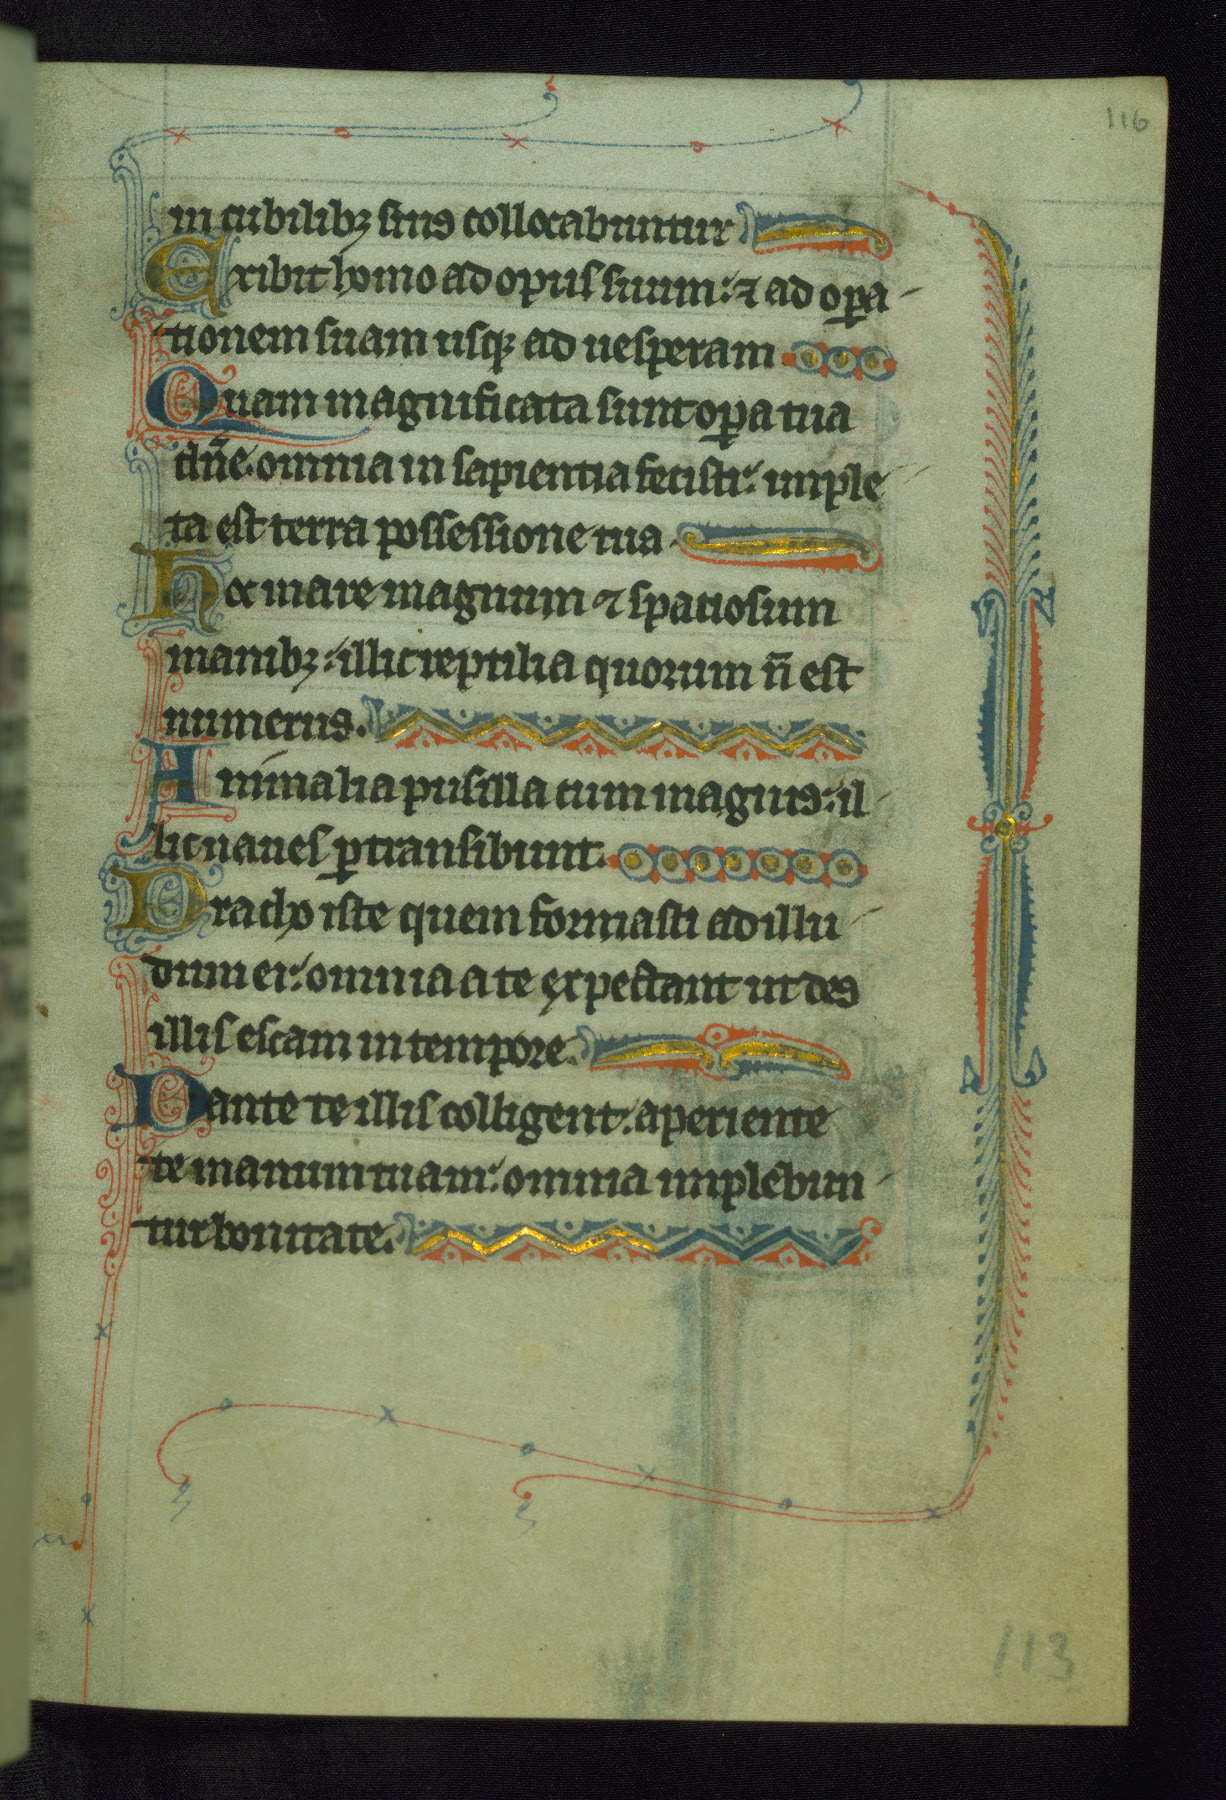 116
in cubilibꝫ suis collocabuntur
Exibit homo ad opus suum: ⁊ ad oꝑa
tionem suam usqꝫ ad uesperam
Quam magnificata sunt oꝑa tua
dñe. omnia in sapientia fecisti: imple
ta est terra possessione tua.
Hoc mare magnum ⁊ spatiosum
manibꝫ: illic reptilia quorum ñ est
numerus.
Animalia pusilla cum magnis: il
lic naues ꝑtransibunt.
Dracho iste quem formasti ad illu
dum ei: omnia a te expectant ut des
illis escam in tempore.
Dante te illis colligent: aperiente
te manum tuam: omnia implebun
tur bonitate.
113